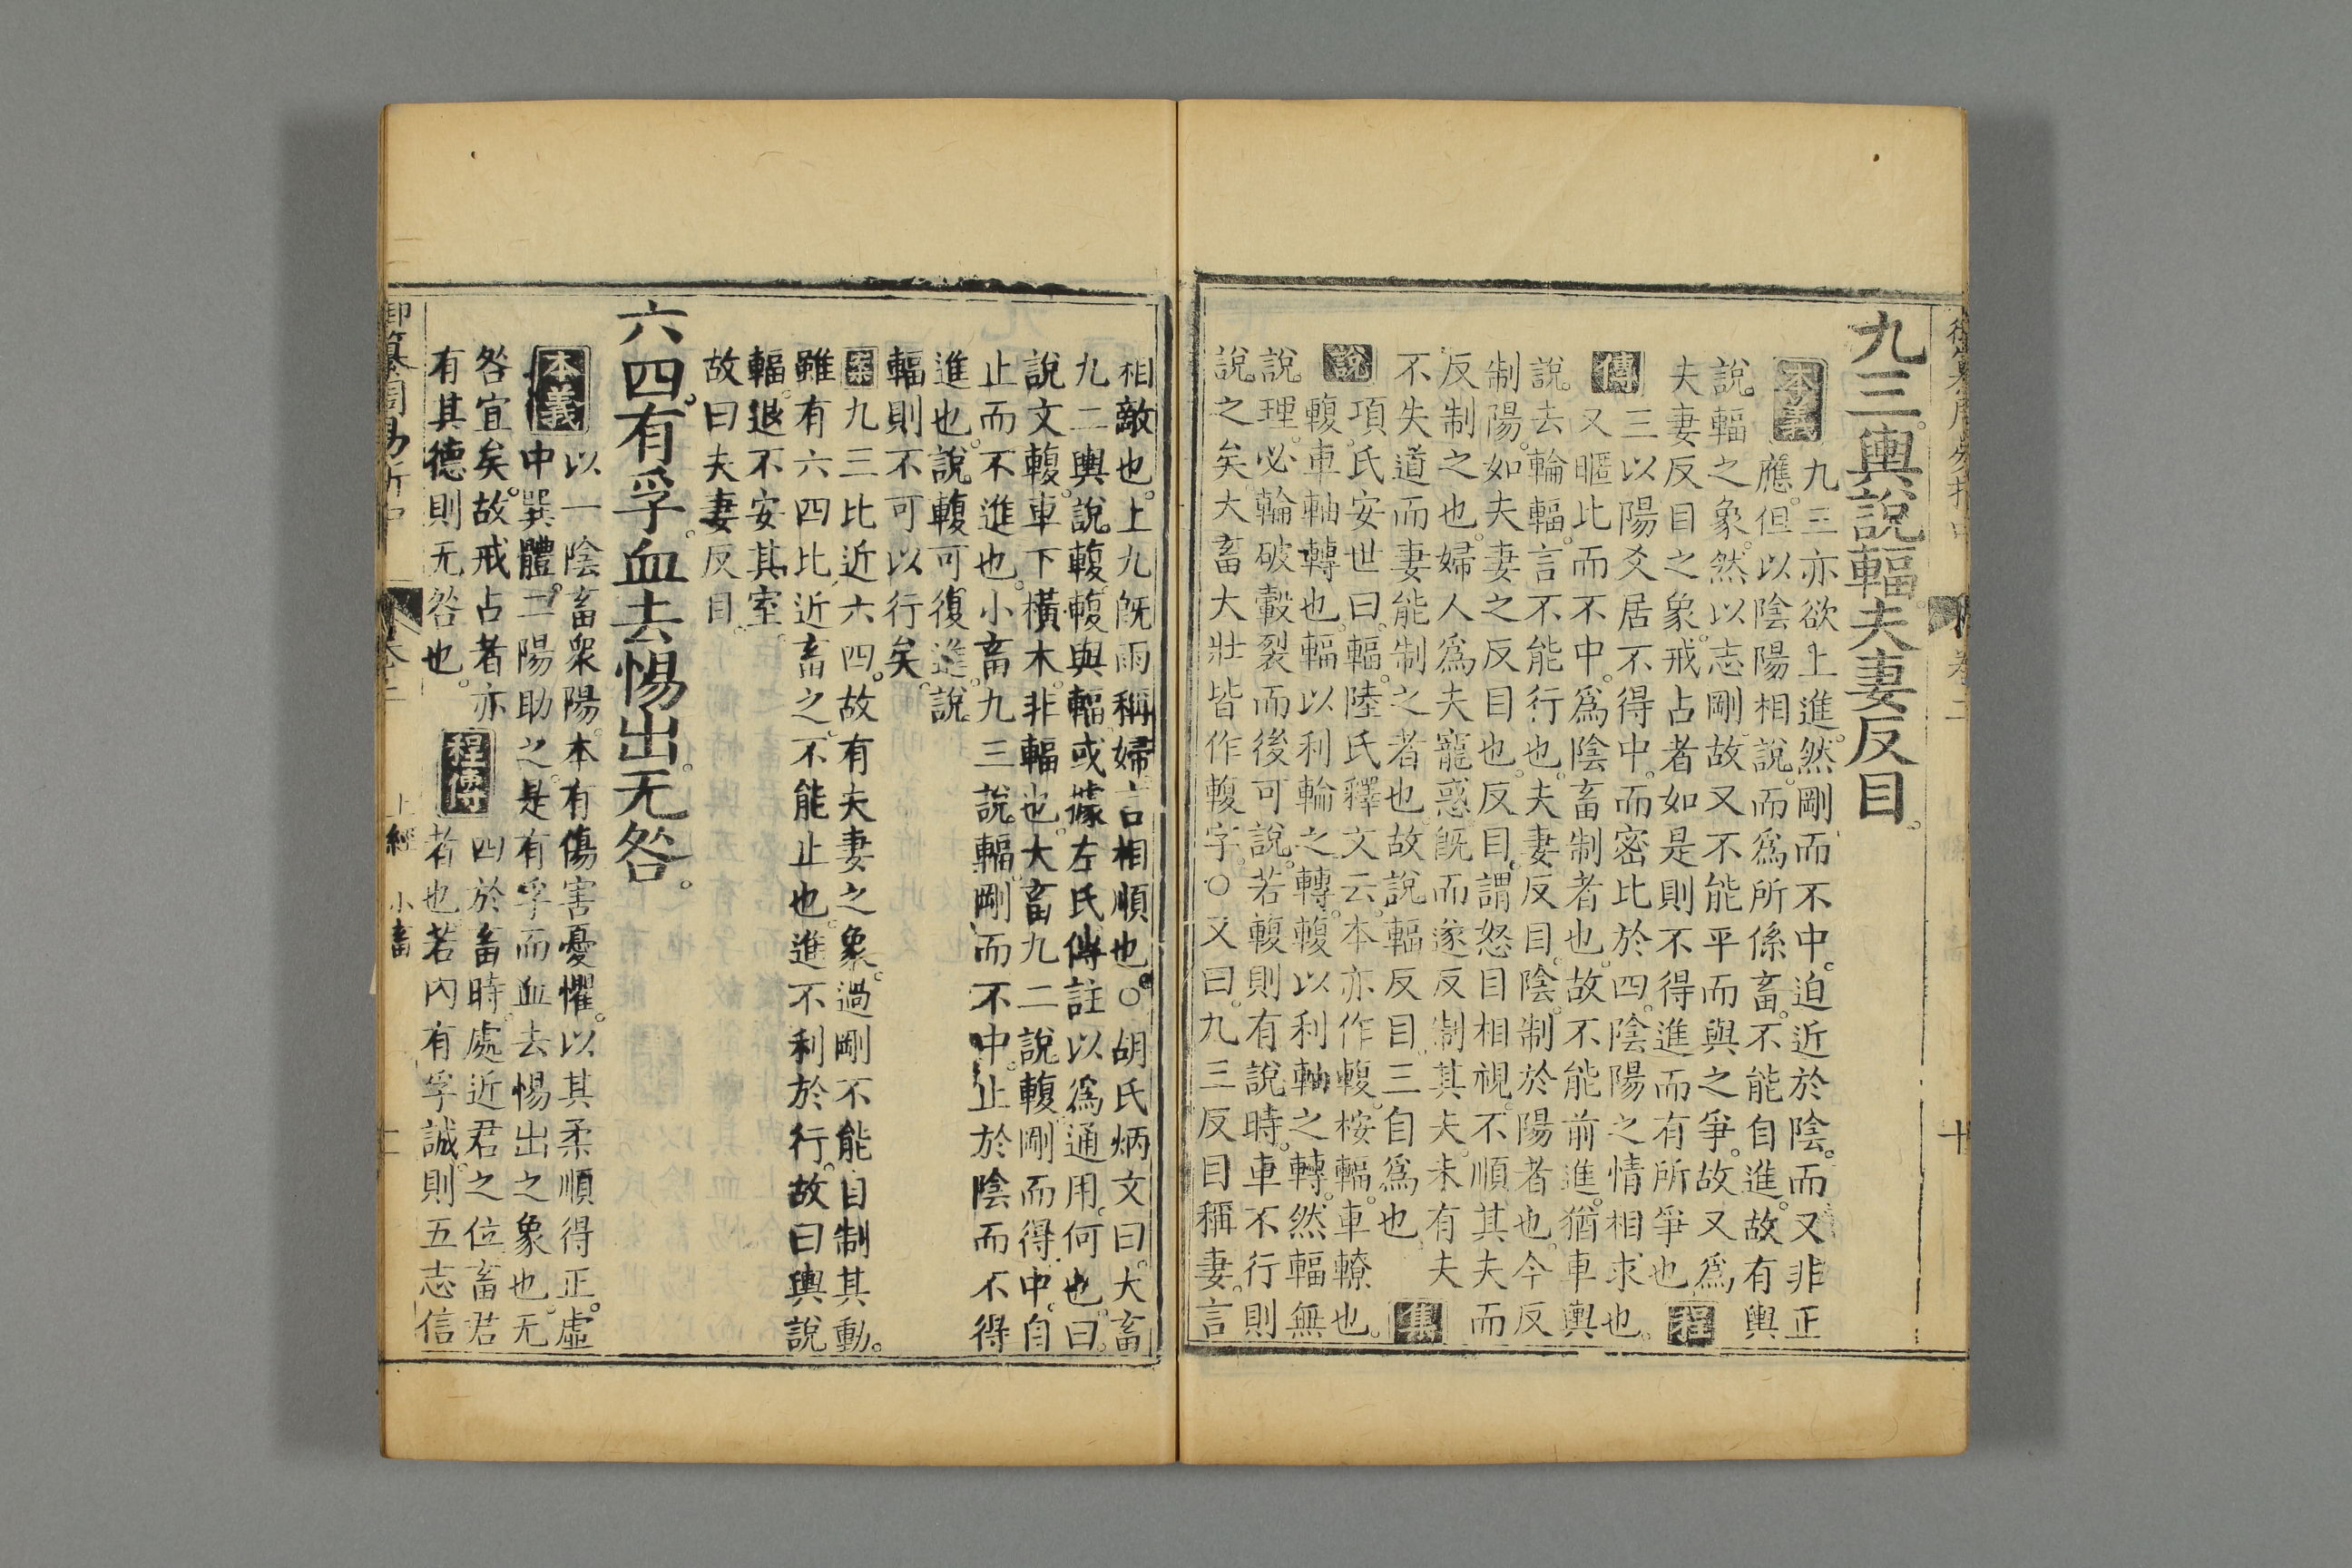 九三。輿說輻。夫妻反目。
本義 九三亦欲上進。然剛而不中。迫近於陰。而又非正
應。但以陰陽相說。而爲所係畜。不能自進。故有輿
說輻之象。然以志剛。故又不能平而與之爭。故又爲
夫妻反目之象。戒占者如是。則不得進而有所爭也。程
傳 三以陽爻居不得中。而密比於四。陰陽之情相求也。
又暱比而不中。爲陰畜制者也。故不能前進。猶車輿
說去輪輻。言不能行也。夫妻反目。陰制於陽者也。今反
制陽。如夫妻之反目也。反目。謂怒目相視。不順其夫而
反制之也。婦人爲夫寵惑。旣而遂反制其夫。未有夫
不失道而妻能制之者也。故說輻反目。三自爲也。集
說 項氏安世曰。輻。陸氏釋文云。本亦作輹。桉輻。車轑也。
輹。車軸轉也。輻以利輪之轉。輹以利軸之轉。然輻無
說理。必輪破轂裂而後可說。若輹則有說時。車不行則
說之矣。大畜大壯皆作輹字。○又曰。九三反目稱妻。言
相敵也。上九旣雨稱婦。言相順也。○胡氏炳文曰。大畜
九二輿說輹。輹與輻。或據左氏傳註以爲通用。何也。曰。
說文輹。車下橫木。非輻也。大畜九二說輹。剛而得中。自
止而不進也。小畜九三說輻。剛而不中。止於陰而不得
進也。說輹可復進。說
輻則不可以行矣。
案 九三比近六四。故有夫妻之象。過剛不能自制其動。
雖有六四比近畜之。不能止也。進不利於行。故曰輿說
輻。退不安其室。
故曰夫妻反目。
六四。有孚。血去惕出。无咎。
本義 以一陰畜衆陽。本有傷害憂懼。以其柔順得正。虛
中巽體。二陽助之。是有孚而血去惕出之象也。无
咎宜矣。故戒占者亦
有其德則无咎也。
程傳 四於畜時。處近君之位。畜君
者也。若內有孚誠。則五志信
御纂周易折中 卷二 上經 小畜